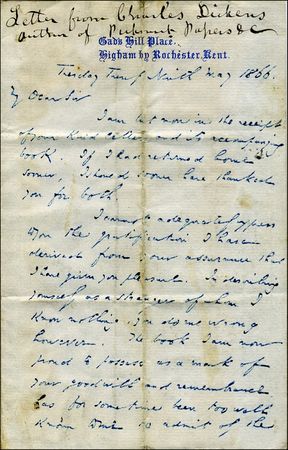 Letter from Charles Dickens
author of Pickwick Papers &c
Gads Hill Place,
Higham by Rochester, Kent.
Tuesday Twenty Ninth May 1866
My Dear Sir
I am but now in the receipt
of your kind letter and its accompanying
book. If I had returned home
sooner, I should sooner have thanked
you for both.
I cannot adequately express
to you the gratification I have
derived from your assurance that
I have given you pleasure. In describing
yourself as a stranger of whom I
know nothing, you do me wrong
however. The book I am now
proud to possess as a mark of
your goodwill and remembrance
has for some time been too well
known to me to admit of the